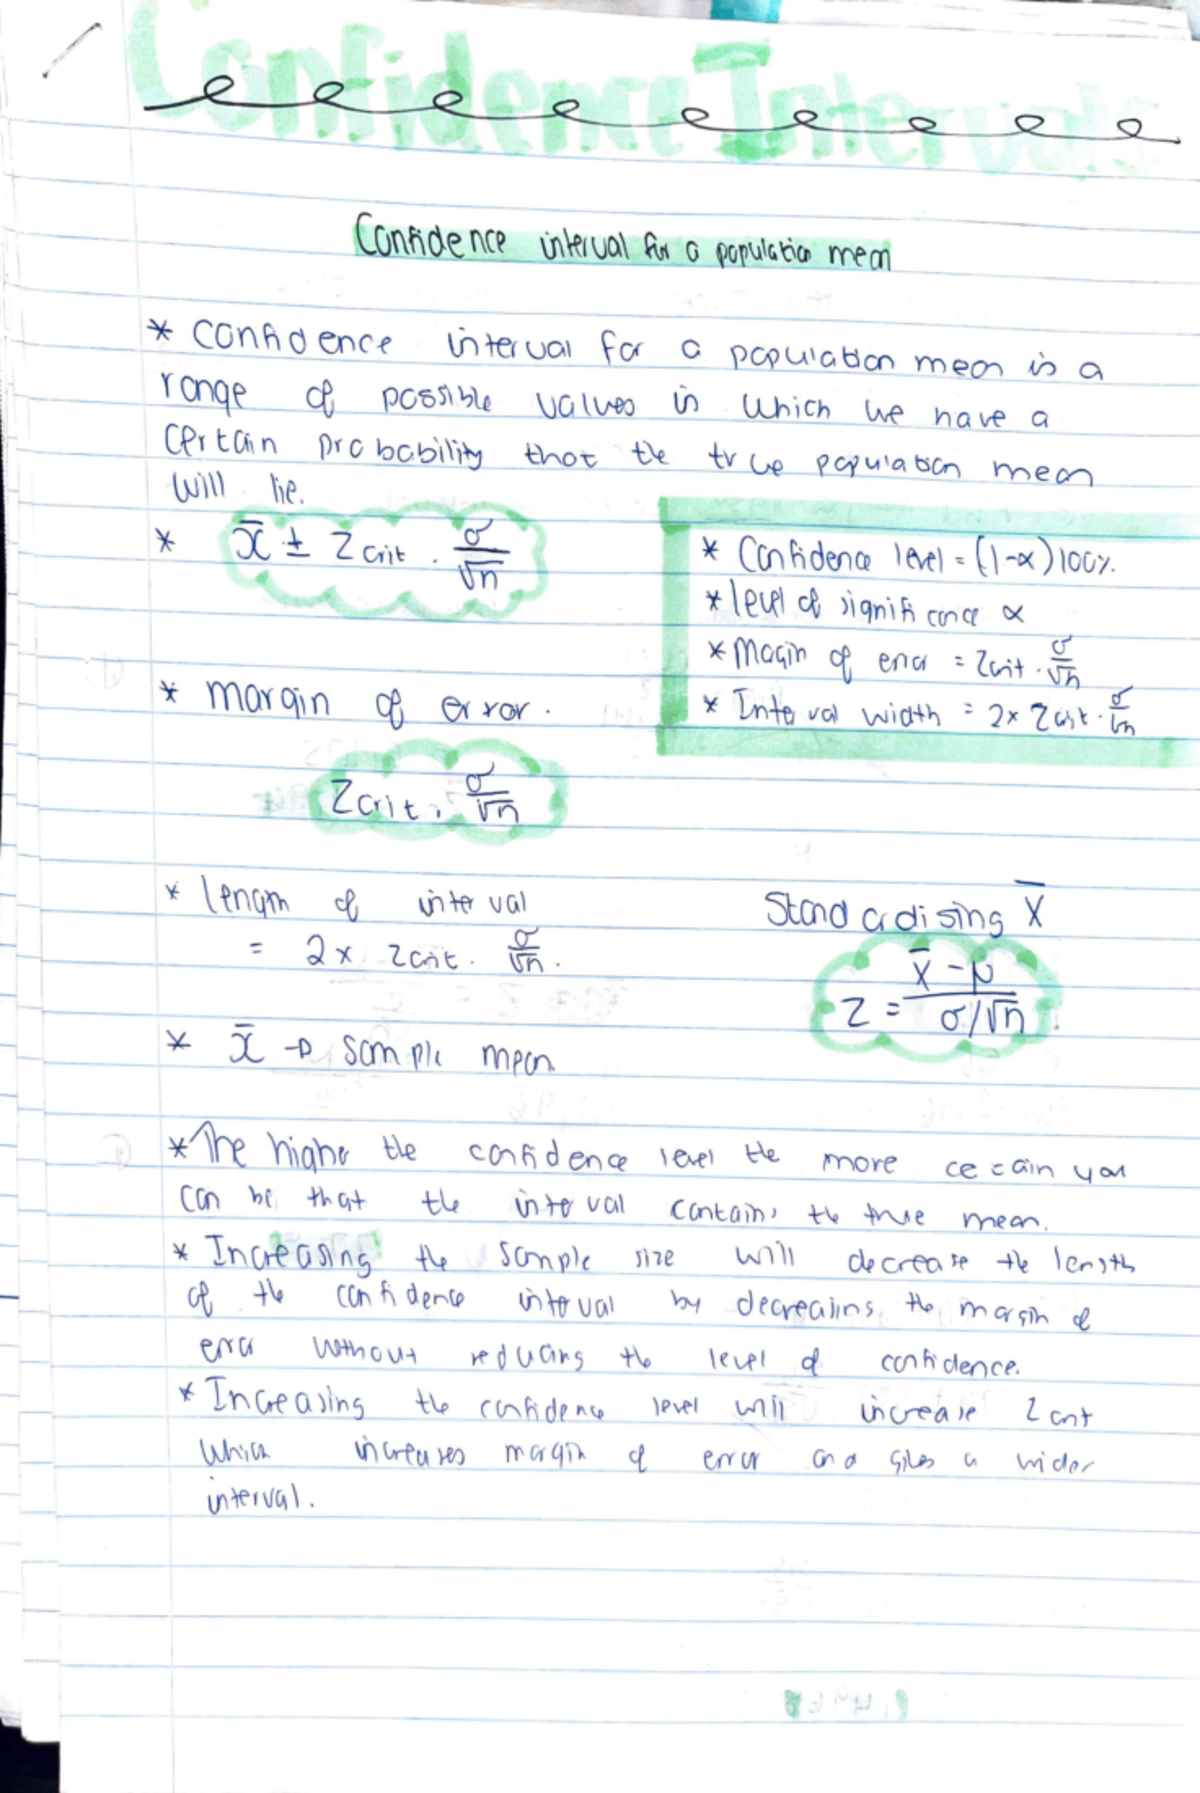 Confidence Intervals
Confidence interval for a population mean
* Confidence interval for a population mean is a
range of possible values in which we have a
certain probability that the true population mean
will lie.
* x̄ ± Zcrit . σ/√n
* Confidence level = (1-α)100%.
* level of significance α
* Margin of error = Zcrit . σ/√n
* Interval width = 2x Zcrit . σ/√n
* margin of error.
Zcrit . σ/√n
* Length of interval
= 2x Zcrit . σ/√n.
Standardising X̄
Z = X̄ - μ / σ/√n
* x̄ → sample mean
* The higher the confidence level the more certain you
can be that the interval contains the true mean.
* Increasing the sample size will decrease the length
of the confidence interval by decreasing the margin of
error without reducing the level of confidence.
* Increasing the confidence level will increase Zcrit
which increases margin of error and gives a wider
interval.